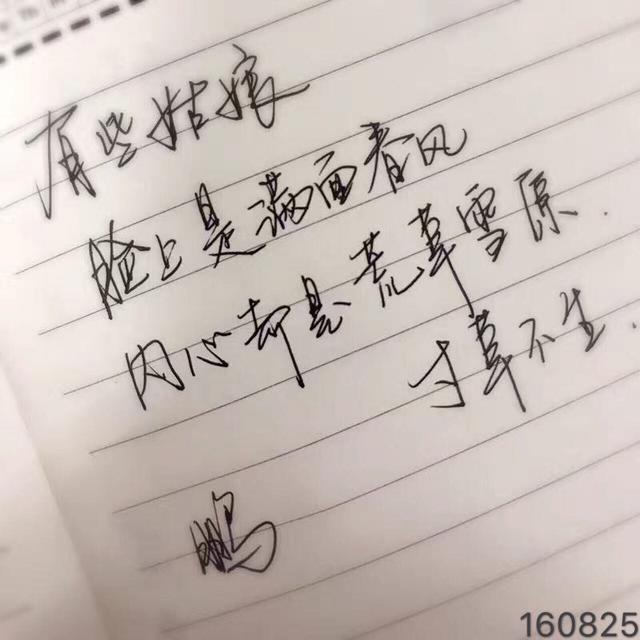 有些姑娘
脸上是满面春风
内心却是荒草雪原.
寸草不生.
鹏
160825